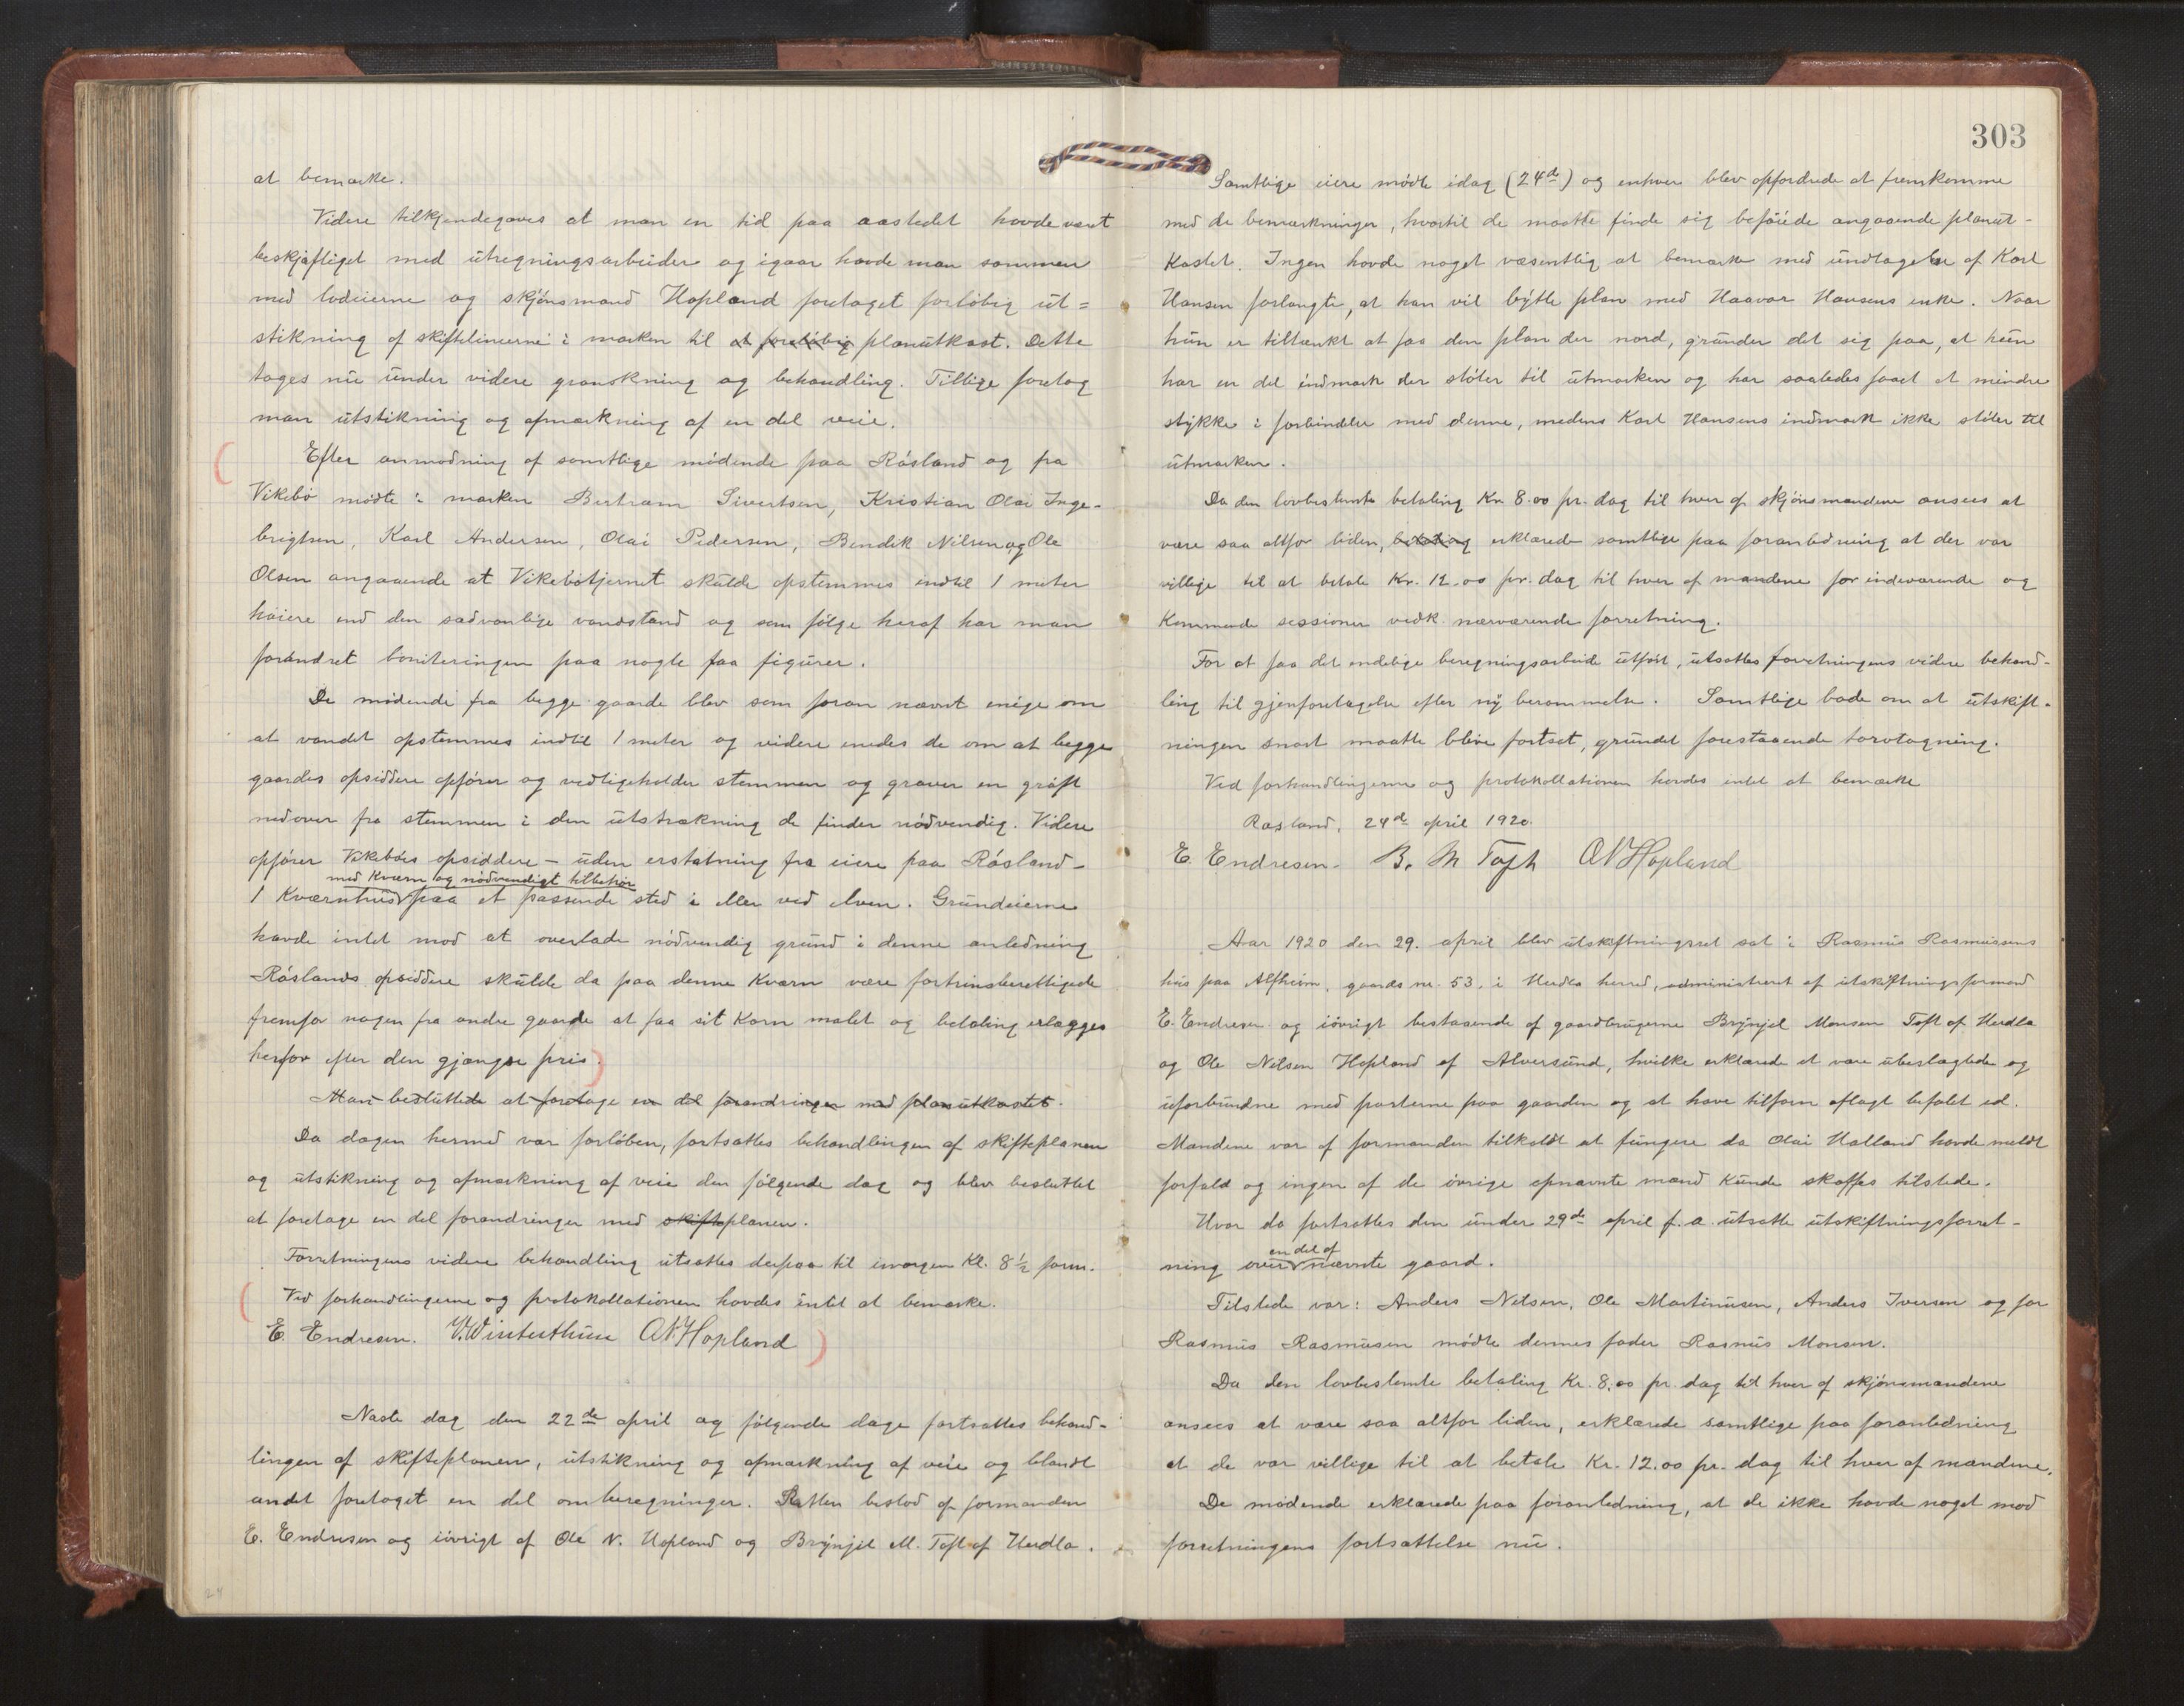 at bemærke.
Videre tilkjendegaves at man en tid paa aastedet havde været
beskjæftiget med utregningsarbeider og igaar havde man sammen
med lodeierne og skjønsmand Hopland foretaget forløbig ut=
stikning af skiftelinierne i marken til et foreløbig planutkast. Dette
tages nu under videre granskning og behandling. Tillige foretog
man utstikning og afmærkning af en del veie.
Efter anmodning af samtlige mødende paa Røsland og fra
Vikebø mødte i marken Bertram Sivertsen, Kristian Olai Inge-
brigtsen, Karl Andersen, Olai Pedersen, Bendik Nilsen og Ole
Olsen angaaende at Vikebøtjernet skulde opstemmes indtil 1 meter
høiere end den sædvanlige vandstand og som følge heraf har man
forandret boniteringen paa nogle faa figurer.
De mødende fra begge gaarde blev som foran nævnt enige om
at vandet opstemmes indtil 1 meter og videre enedes de om at begge
gaardes opsiddere opfører og vedligeholder stemmen og graver en grøft
nedover fra stemmen i den utstrækning de finder nødvendig. Videre
opfører Vikebøs opsiddere – uden erstatning fra eiere paa Røsland –
med Kværn og nødvendigt tilbehør
1 Kværnhus paa et passende sted i eller ved elven. Grundeierne
havde intet mod at overlade nødvendig grund i denne anledning
Røslands opsiddere skulde da paa denne Kværn være fortrinsberettigede
fremfor nogen fra andre gaarde at faa sit Korn malet og betaling erlægges
herfor efter den gjængse pris.
Man besluttede at foretage en del forandringer med planutkastet.
Da dagen hermed var forløben, fortsattes behandlingen af skifteplanen
og utstikning og afmærkning af veie den følgende dag og blev besluttet
at foretage en del forandringer med skifteplanen.
Forretningens videre behandling utsattes derpaa til imorgen Kl. 8½ form.
Ved forhandlingerne og protokollationen havdes intet at bemærke.
E. Endresen. V. Winterthun O N Hopland
Næste dag den 22de april og følgende dage fortsattes behand-
lingen af skifteplanen, utstikning og afmærkning af veie og blandt
andet foretaget en del omberegninger. Retten bestod af formanden
E. Endresen og iøvrigt af Ole N. Hopland og Brynjel M. Toft af Herdla.
24
303
Samtlige eiere mødte idag (24de) og enhver blev opfordrede at fremkomme
med de bemærkninger, hvortil de maatte finde sig beføiede angaaende planut-
kastet. Ingen havde noget væsentlig at bemærke med undtagelse af Karl
Hansen forlangte, at han vil bytte plan med Haavar Hansens enke. Naar
hun er tiltænkt at faa den plan der nord, grunder det sig paa, at hun
har en del indmark der støter til utmarken og har saaledes faaet et mindre
stykke i forbindelse med denne, medens Karl Hansens indmark ikke støter til
utmarken.
Da den lovbestemte betaling Kr. 8.00 pr. dag til hver af skjønsmændene ansees at
være saa altfor liden, betaling erklærede samtlige paa foranledning at der var
villige til at betale Kr. 12.00 pr. dag til hver af mændene for indeværende og
Kommende sessioner vedk. nærværende forretning.
For at faa det endelige beregningsarbeide utført, utsattes forretningens videre behand-
ling til gjenforetagelse efter ny berammelse. Samtlige bade om at utskift-
ningen snart maatte blive fortsat, grundet forestaaende torvtagning.
Ved forhandlingerne og protokollationen havdes intet at bemærke
Røsland, 24de april 1920.
E. Endresen. B. M Toft O N Hopland
Aar 1920 den 29. april blev utskiftningsret sat i Rasmus Rasmussens
hus paa Alfheim, gaards nr. 53, i Herdla herred, administreret af utskiftningsformand
E. Endresen og iøvrigt bestaaende af gaardbrugerne Brynjel Monsen Toft af Herdla
og Ole Nilsen Hopland af Alversund, hvilke erklærede at være ubeslægtede og
uforbundne med parterne paa gaarden og at have tilforn aflagt befalet ed.
Mændene var af formanden tilkaldt at fungere da Olai Halland havde meldt
forfald og ingen af de øvrige opnævnte mænd Kunde skaffes tilstede.
Hvor da fortsattes den under 29de april f. a. utsatte utskiftningsforret-
en del af
ning over nævnte gaard.
Tilstede var: Anders Nilsen, Ole Martinusen, Anders Iversen og for
Rasmus Rasmusen mødte dennes fader Rasmus Monsen.
Da den lovbestemte betaling Kr. 8.00 pr. dag til hver af skjønsmændene
ansees at være saa altfor liden, erklærede samtlige paa foranledning
at de var villige til at betale Kr. 12.00 pr. dag til hver af mændene.
De mødende erklærede paa foranledning, at de ikke havde noget mod
forretningens fortsættelse nu.